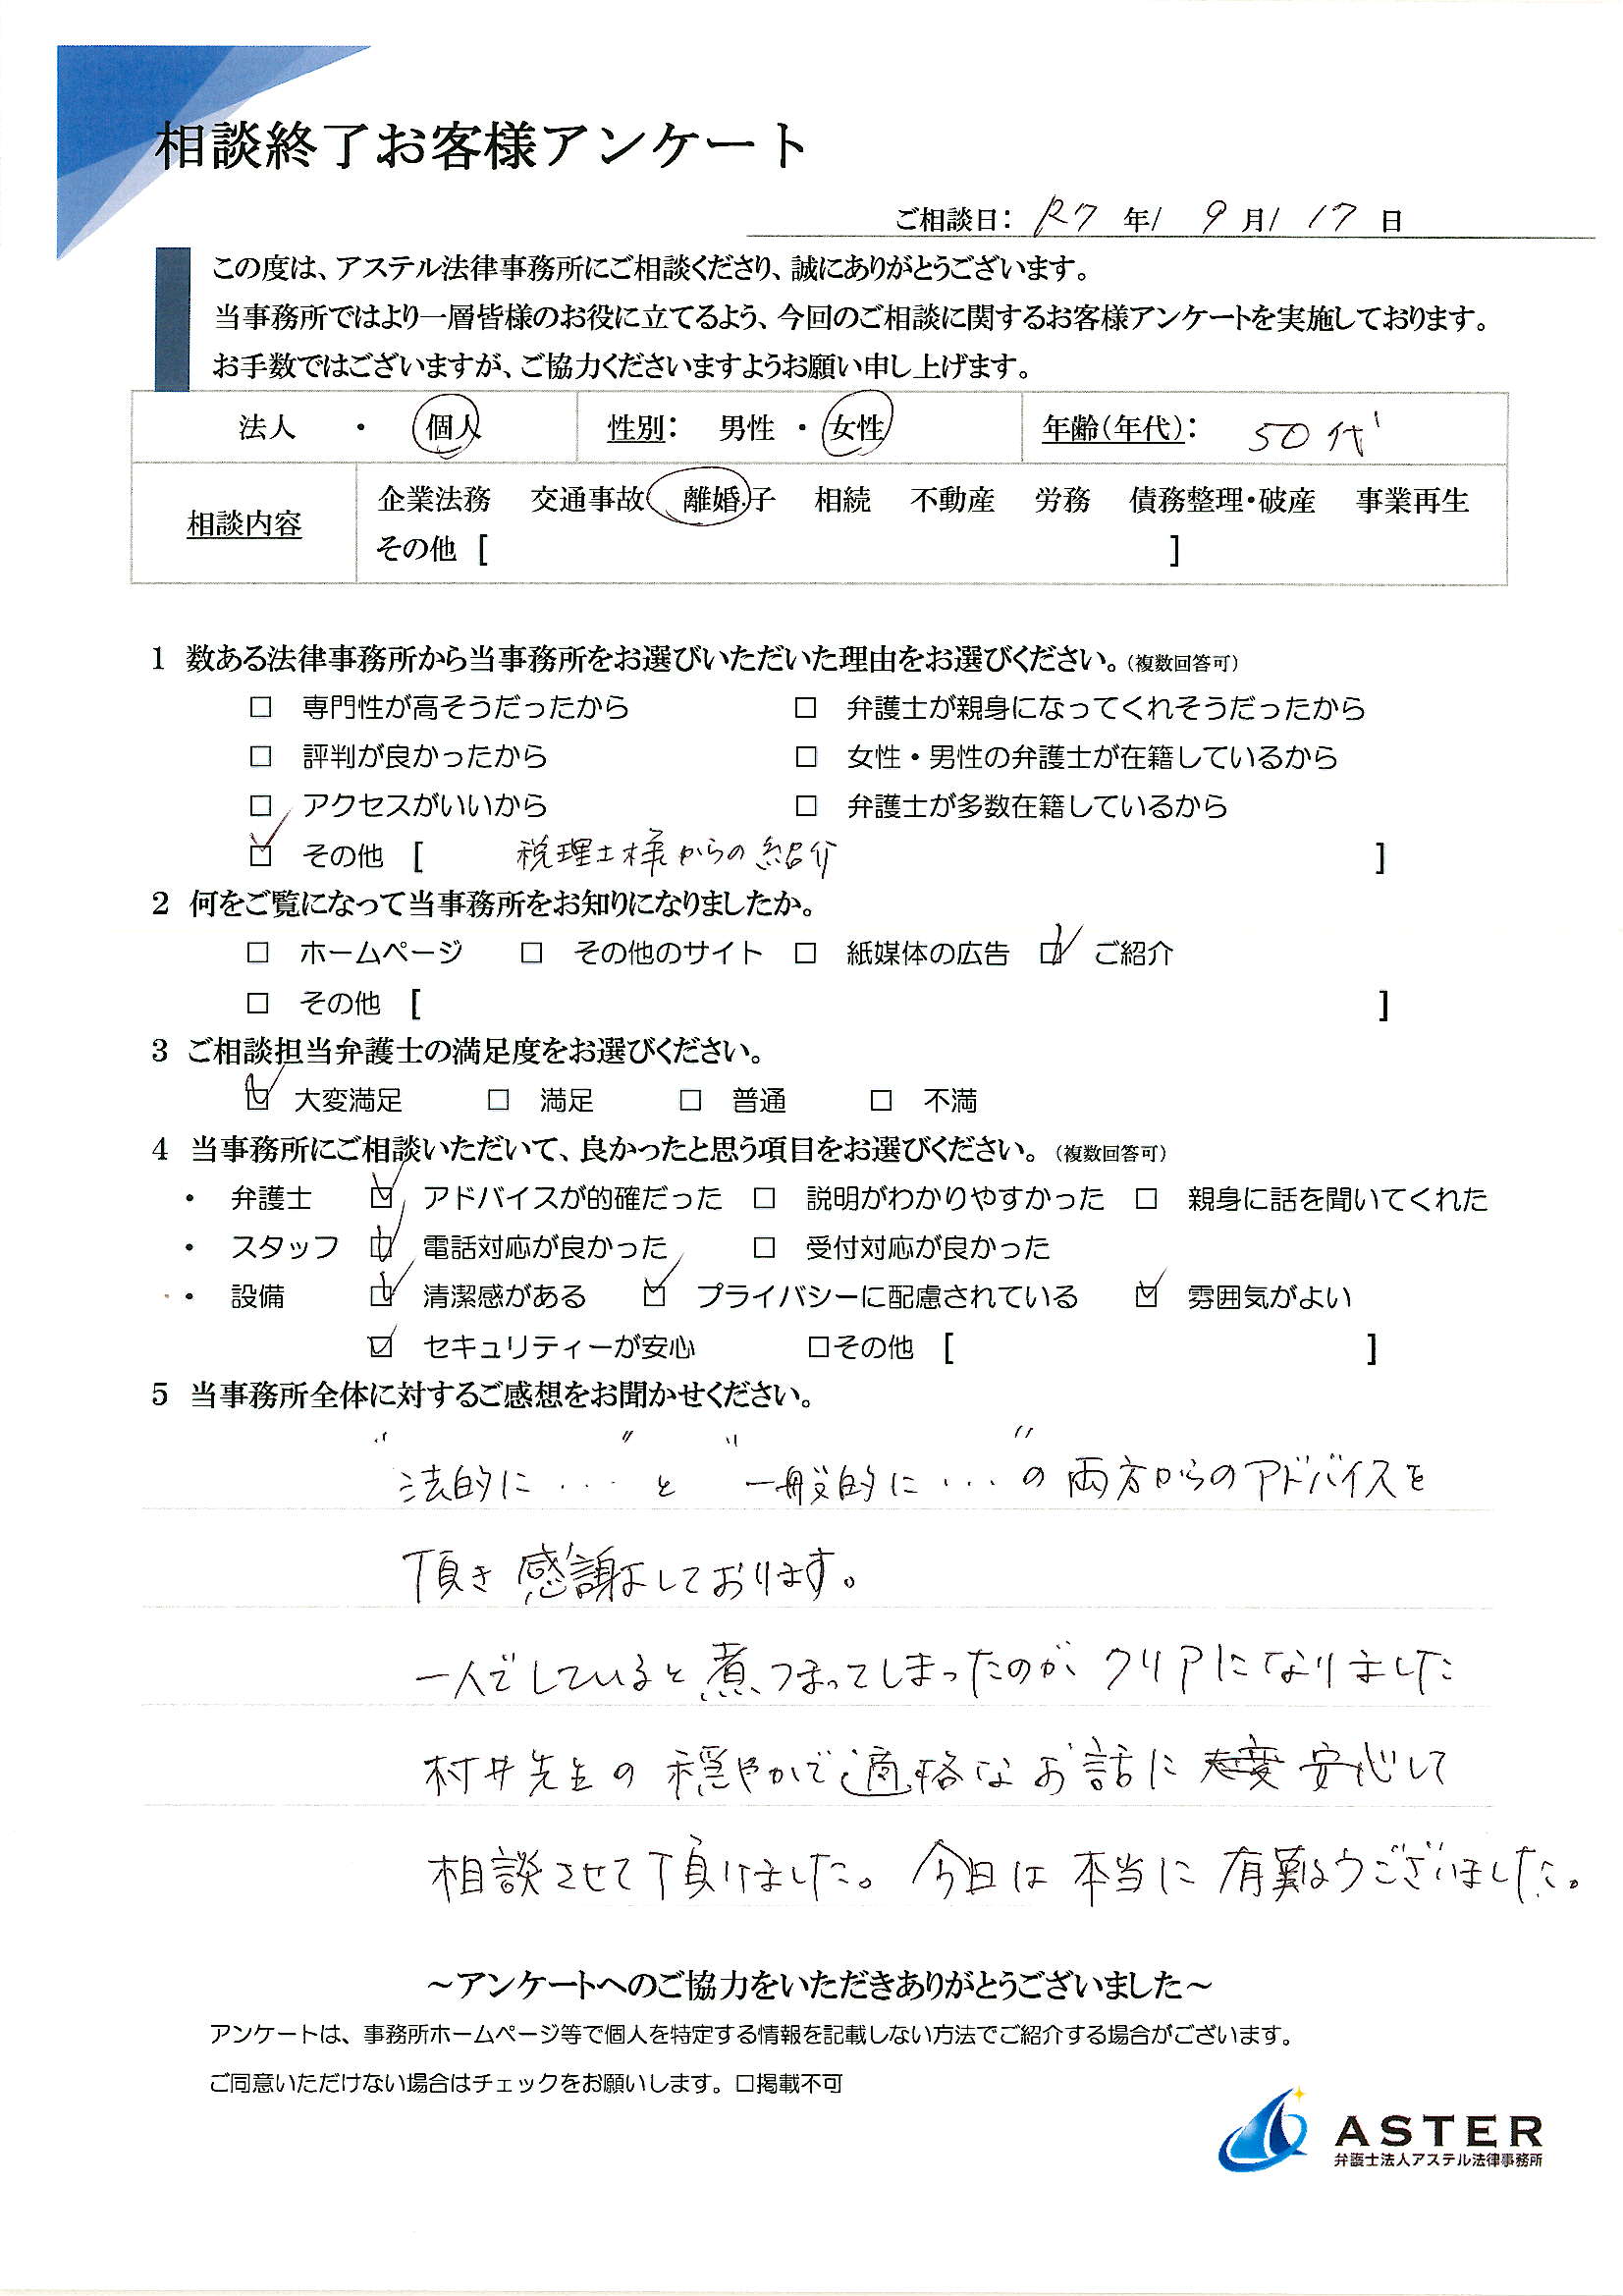 相談終了お客様アンケート
ご相談日： R7 年/ 9 月/ 17 日
この度は、アステル法律事務所にご相談くださり、誠にありがとうございます。
当事務所ではより一層皆様のお役に立てるよう、今回のご相談に関するお客様アンケートを実施しております。
お手数ではございますが、ご協力くださいますようお願い申し上げます。
法人 ・ 個人 性別： 男性 ・ 女性 年齢（年代）： 50代
相談内容 企業法務 交通事故 離婚・子 相続 不動産 労務 債務整理・破産 事業再生
その他 [ ]
1 数ある法律事務所から当事務所をお選びいただいた理由をお選びください。（複数回答可）
□ 専門性が高そうだったから □ 弁護士が親身になってくれそうだったから
□ 評判が良かったから □ 女性・男性の弁護士が在籍しているから
□ アクセスがいいから □ 弁護士が多数在籍しているから
☑ その他 [ 税理士様からの紹介 ]
2 何をご覧になって当事務所をお知りになりましたか。
□ ホームページ □ その他のサイト □ 紙媒体の広告 ☑ ご紹介
□ その他 [ ]
3 ご相談担当弁護士の満足度をお選びください。
☑ 大変満足 □ 満足 □ 普通 □ 不満
4 当事務所にご相談いただいて、良かったと思う項目をお選びください。（複数回答可）
・ 弁護士 ☑ アドバイスが的確だった □ 説明がわかりやすかった □ 親身に話を聞いてくれた
・ スタッフ ☑ 電話対応が良かった □ 受付対応が良かった
・ 設備 ☑ 清潔感がある ☑ プライバシーに配慮されている ☑ 雰囲気がよい
☑ セキュリティーが安心 □その他 [ ]
5 当事務所全体に対するご感想をお聞かせください。
“法的に・・・”と“一般的に・・・”の両方からのアドバイスを
頂き感謝しております。
一人でしていると煮つまってしまったのが、クリアになりました
村井先生の穏やかで適格なお話に大変安心して
相談させて頂けました。今日は本当に有難うございました。
～アンケートへのご協力をいただきありがとうございました～
アンケートは、事務所ホームページ等で個人を特定する情報を記載しない方法でご紹介する場合がございます。
ご同意いただけない場合はチェックをお願いします。□掲載不可
ASTER
弁護士法人アステル法律事務所